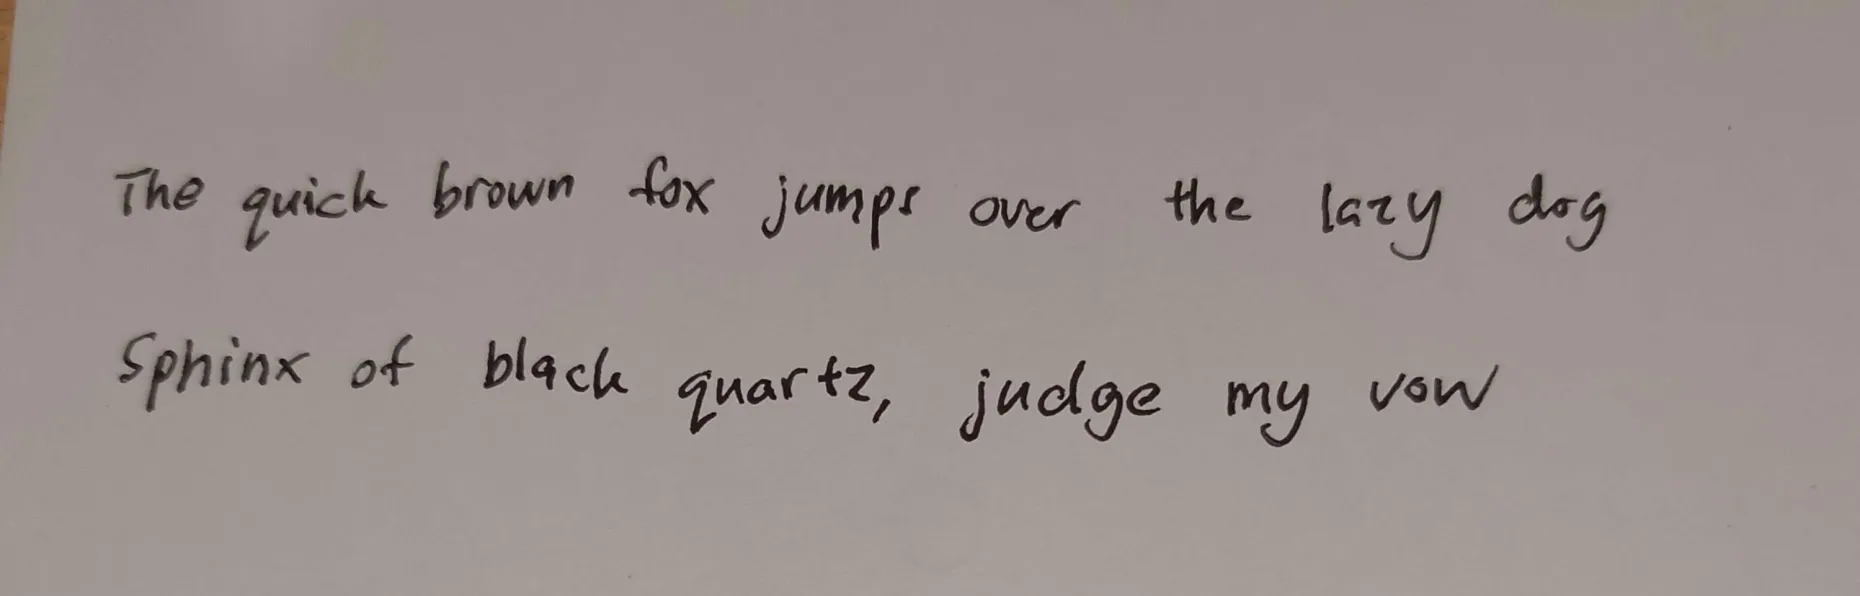 The quick brown fox jumps over the lazy dog
Sphinx of black quartz, judge my vow